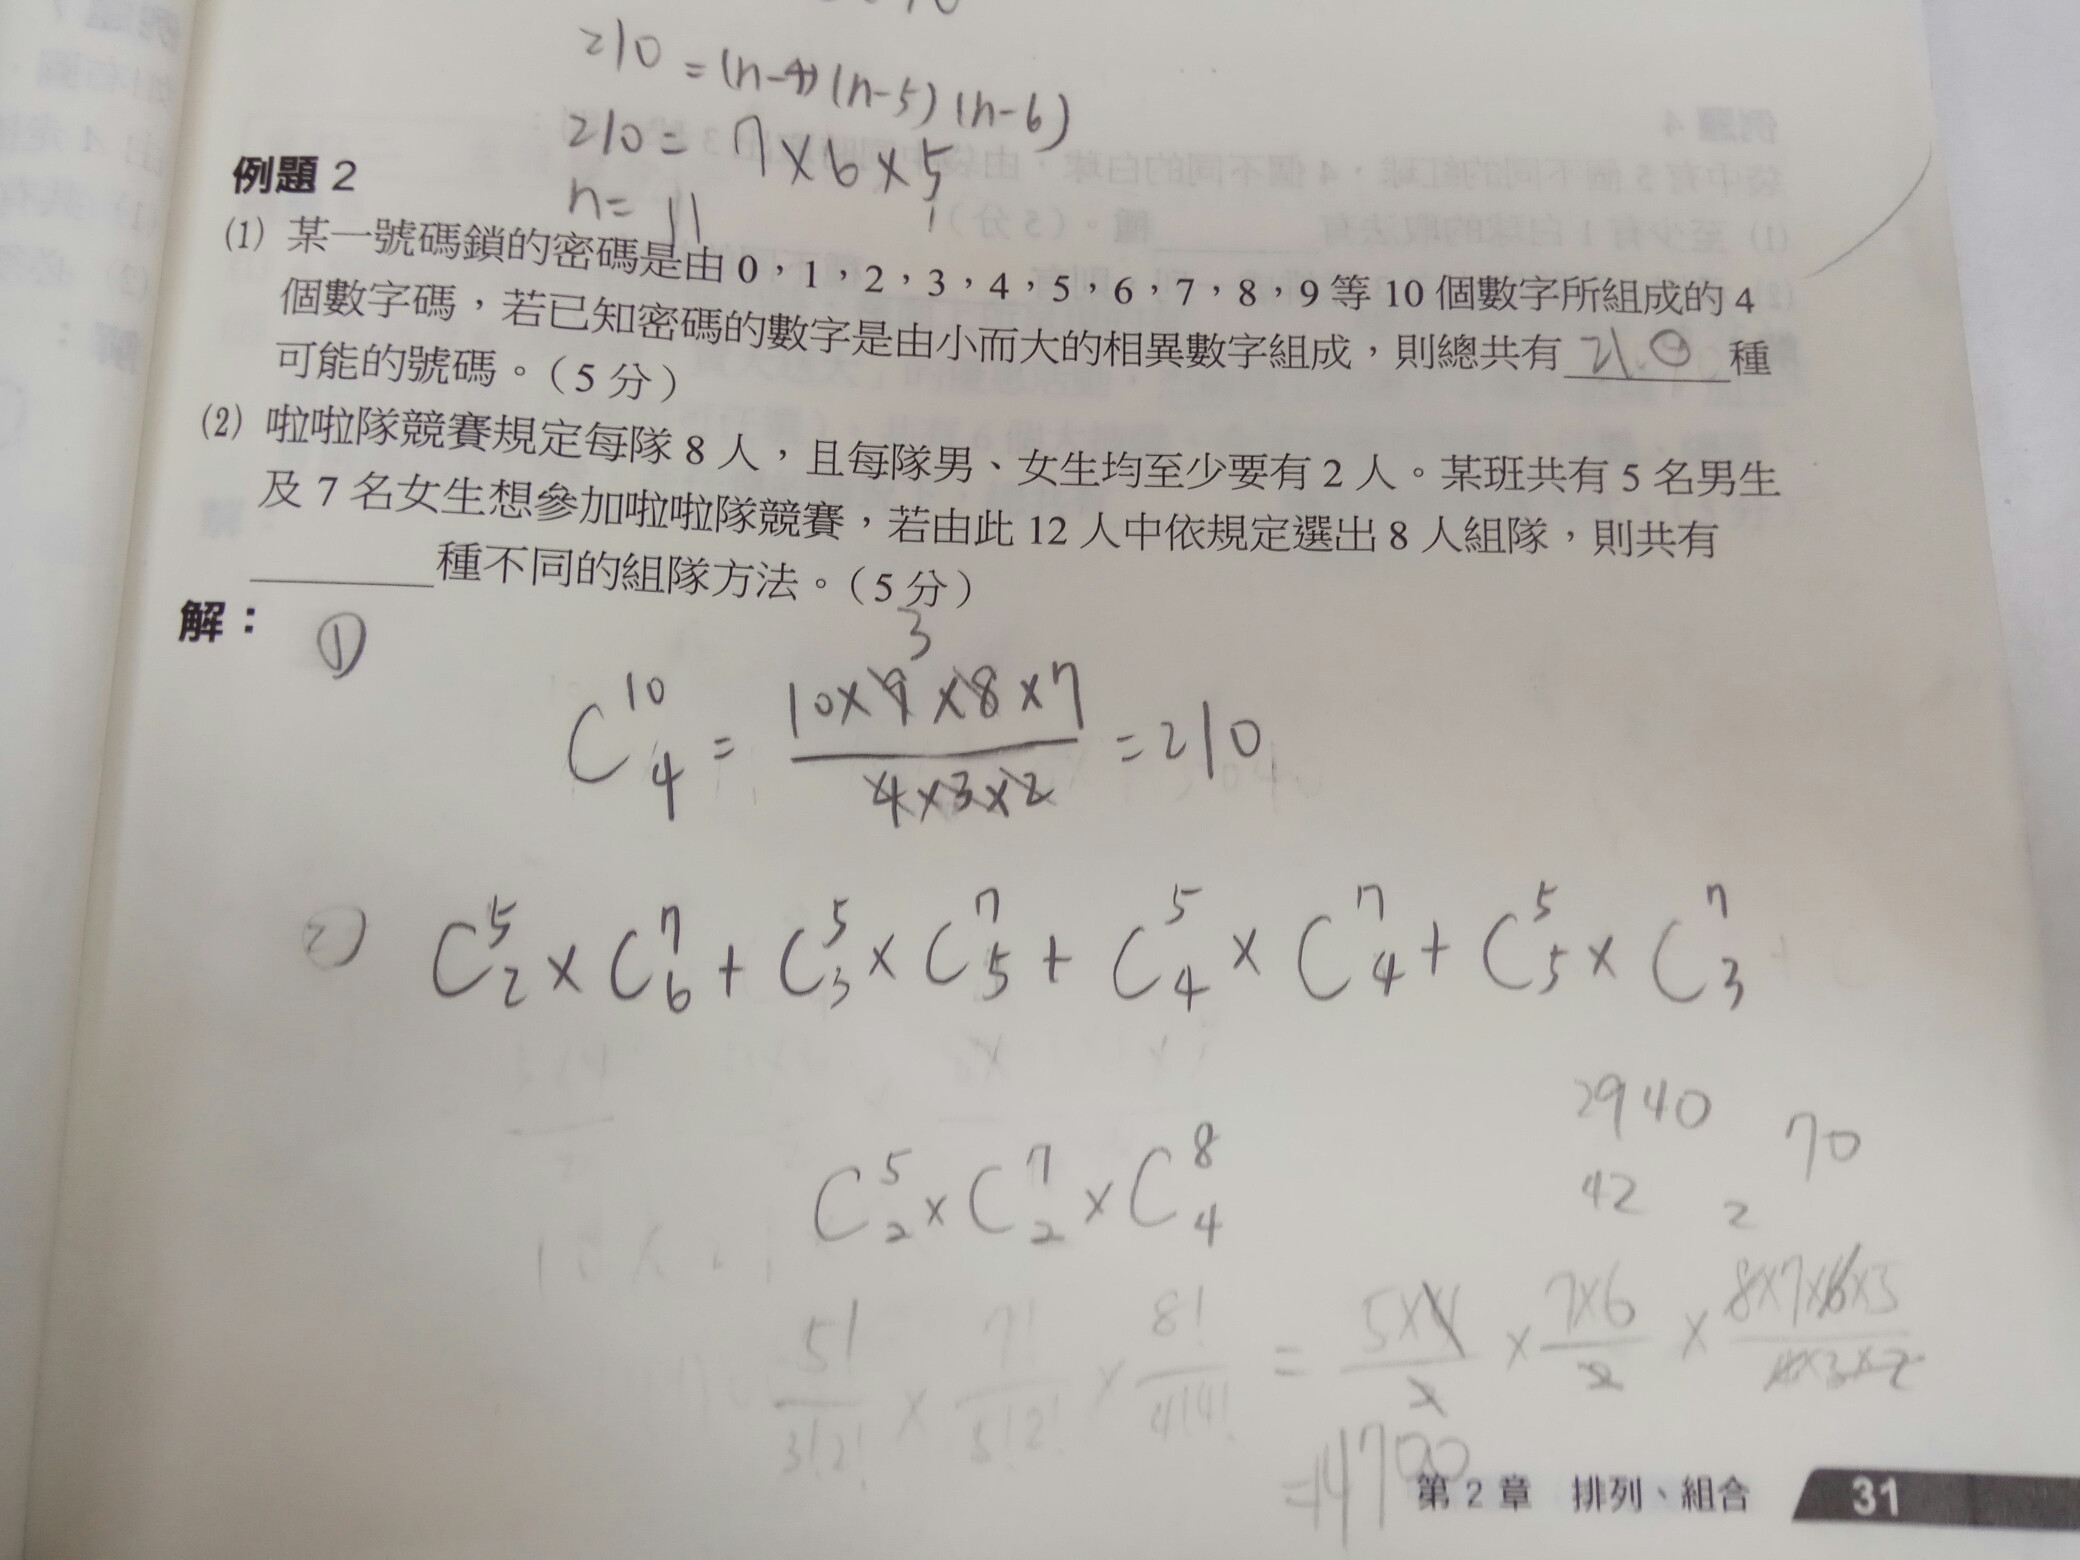 210 = (n-4)(n-5)(n-6)
210 = 7×6×5
n = 11
例題 2
(1) 某一號碼鎖的密碼是由 0，1，2，3，4，5，6，7，8，9 等 10 個數字所組成的 4
個數字碼，若已知密碼的數字是由小而大的相異數字組成，則總共有 210 種
可能的號碼。（5 分）
(2) 啦啦隊競賽規定每隊 8 人，且每隊男、女生均至少要有 2 人。某班共有 5 名男生
及 7 名女生想參加啦啦隊競賽，若由此 12 人中依規定選出 8 人組隊，則共有
______種不同的組隊方法。（5 分）
解：
①
3
C^10_4 = 10×9×8×7 / 4×3×2 = 210
2) C^5_2 × C^7_6 + C^5_3 × C^7_5 + C^5_4 × C^7_4 + C^5_5 × C^7_3
2940
70
42
2
C^5_2 × C^7_2 × C^8_4
5!/3!2! × 7!/5!2! × 8!/4!4! = 5×4/2 × 7×6/2 × 8×7×6×5/4×3×2
=14700
第 2 章 排列、組合 31